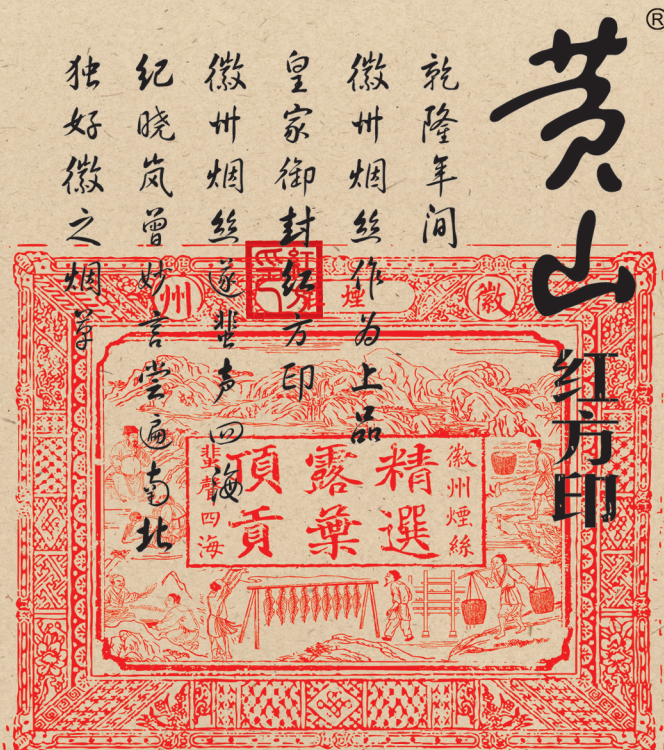 ®
黄山
红方印
乾隆年间
徽州烟丝作为上品
皇家御封红方印
徽州烟丝遂蜚声四海
纪晓岚曾妙言尝遍南北
独好徽之烟草
徽
煙
州
徽州煙絲
精選
露葉
頂貢
蜚聲四海